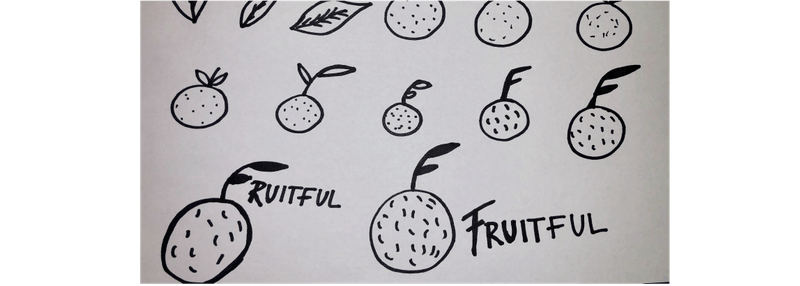 FRUITFUL
FRUITFUL